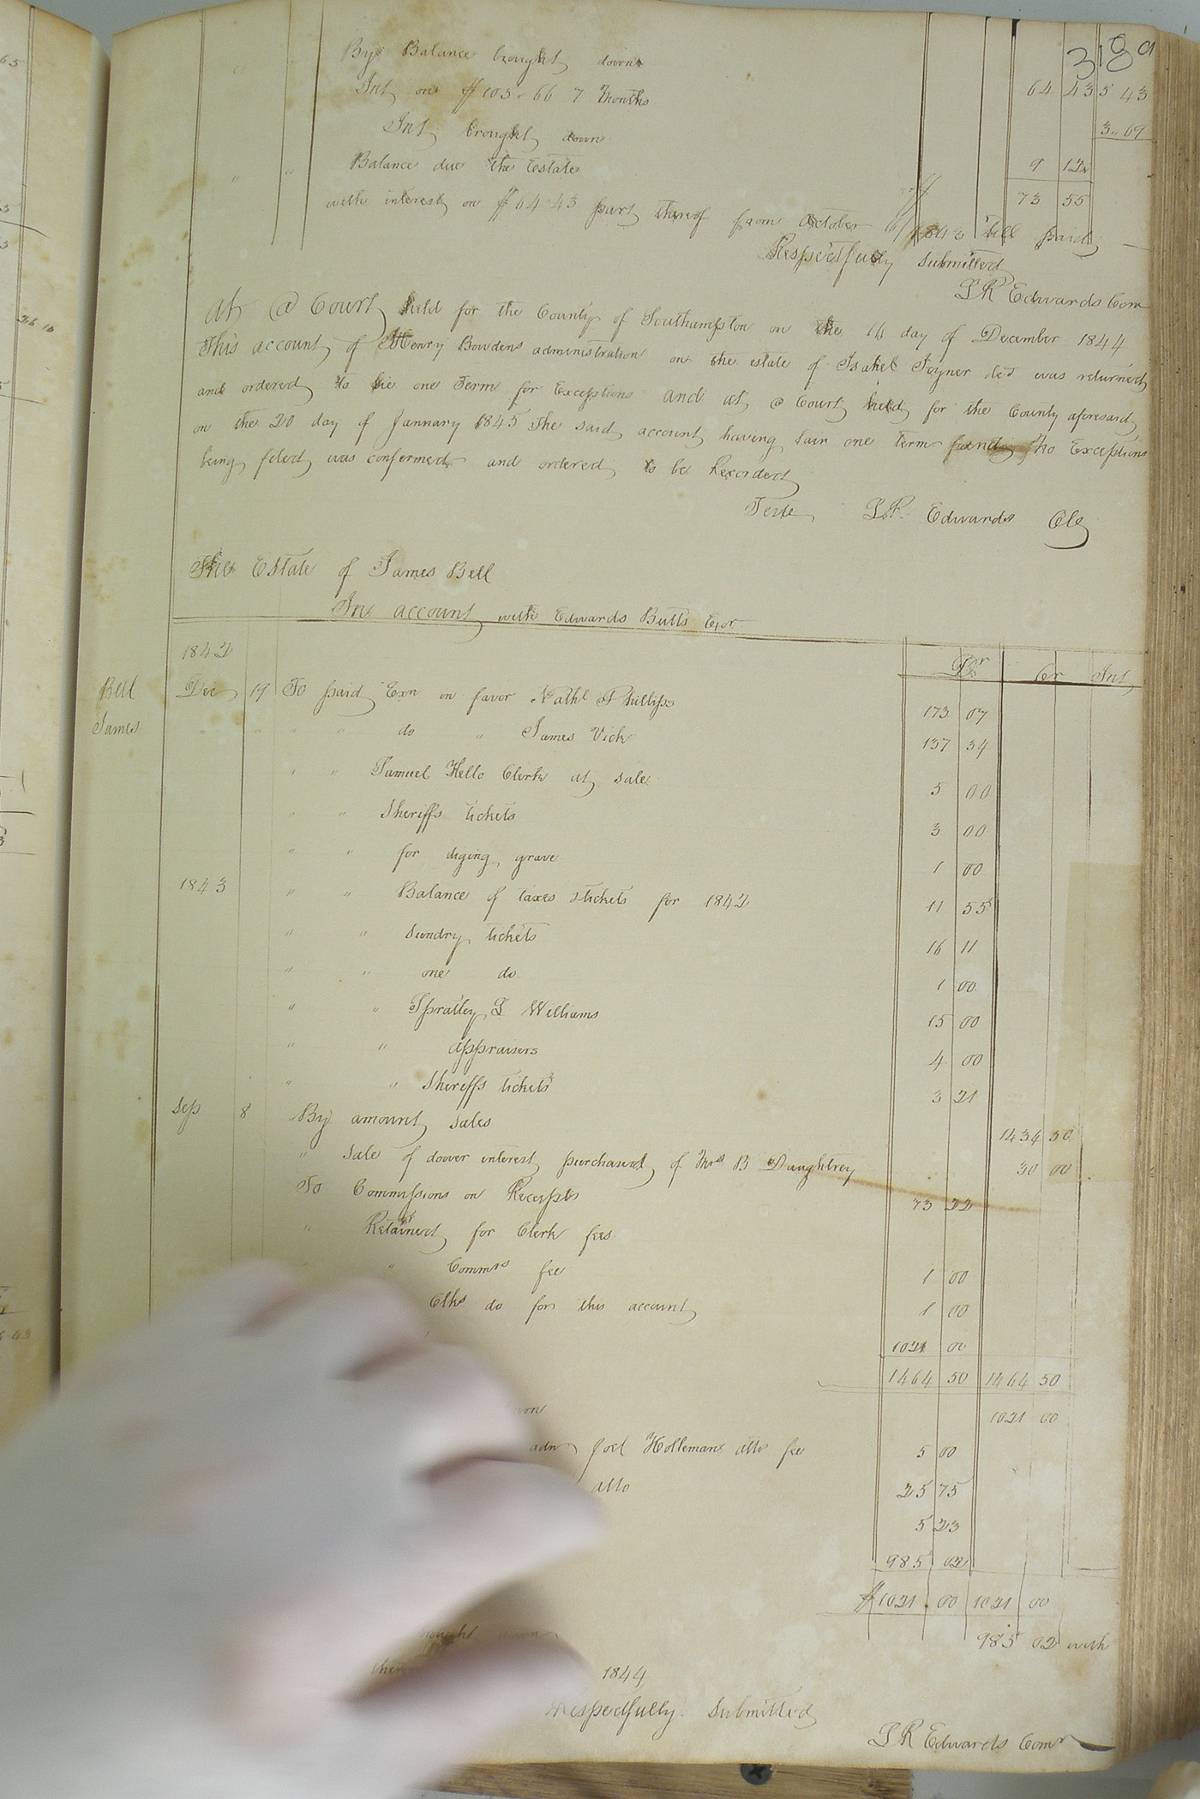 318 a
By Balance brought down 64 43 5 43
Int on $105.66 7 Months 3.69
Int brought down 9 12
Balance due the Estate 73 55
with interest on $64.43 part thereof from October 1843 till paid
Respectfully submitted
L R Edwards Com
At a Court held for the County of Southampton on the 16 day of December 1844
This account of Henry Bowdens administration on the estate of Isabel Joyner decd was returned
and ordered to lie one Term for Exceptions and at a Court held for the County aforesaid
on the 20 day of January 1845 The said account having lain one term and no Exceptions
being filed was confirmed and ordered to be Recorded
Teste L R. Edwards Clk
The Estate of James Bell
In account with Edwards Butts Exor
1842 Dr Cr Int
Bell Dec 19 To paid Exn on favor Nathl P Phillips 173 07
James " " " do " James Vick 137 34
" " Samuel Kello Clerk at sale 5 00
" " Sheriffs tickets 3 00
" " for diging grave 1 00
1843 " " Balance of taxes & tickets for 1842 11 55
" " Sundry tickets 16 11
" " one do 1 00
" " Spratley & Williams 15 00
" " appraisers 4 00
" " Sheriffs tickets 3 21
Sep 8 By amount sales 1434 50
" Sale of dower interest purchased of Mrs B Daughtrey 30 00
To Commissions on Receipts 73 22
" Retained for Clerk fees
" Commrs fee 1 00
Clks do for this account 1 00
1021 00
1464 50 1464 50
1021 00
adn Joel Holleman atto fee 5 00
atto 25 75
5 23
985 02
$1021.00 1021 00
brought down 985 02 with
1844
Respectfully Submitted
L R Edwards Comr